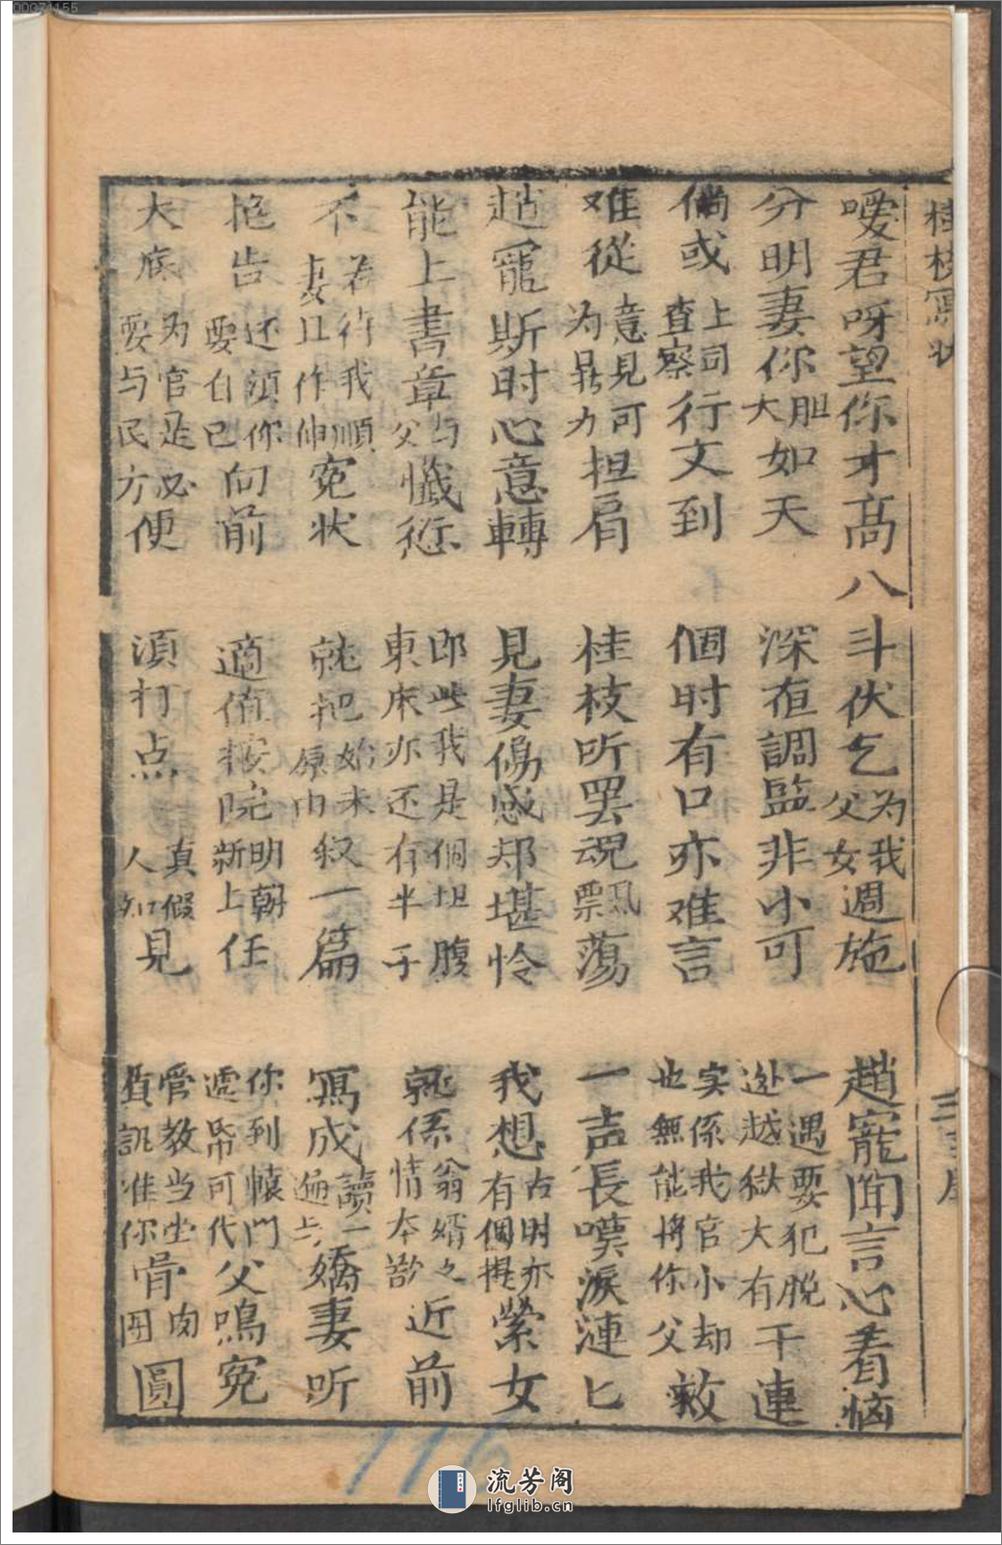 桂枝寫状
嗳君呀望你才高八斗伏乞为我父女週施趙寵闻言心着恼
分明妻你胆大如天深夜調監非小可一遇要犯脱逊越獄大有干連
倘或上司查察行文到個时有口亦难言实係我官小却也無能将你父救
难從意見可为鼎力担肩桂枝听罢魂飄蕩一声長嘆淚漣匕
趙寵斯时心意轉見妻傷感却堪怜我想古时亦有個提縈女
能上書章与父懺愆即此我是個坦腹東床亦还有半子就係翁婿之情本欲近前
不若待我順妻且作伸冤状就把始末原由叙一篇寫成讀一遍与嬌妻听
抱告还須你要自己向前適值按院明朝新上任你到轅門遞帋可代父鳴冤
大底为官是必要与民方便須打点真假人知見管教当坐質訊准你骨肉团圓
116
流芳阁
lfglib.cn
00071155